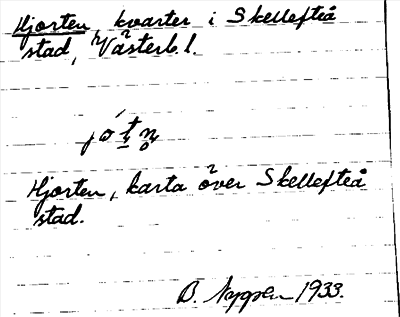 Hjorten, kvarter i Skellefteå
stad, Västerb. l.
Hjorten, karta över Skellefteå
stad.
1933.